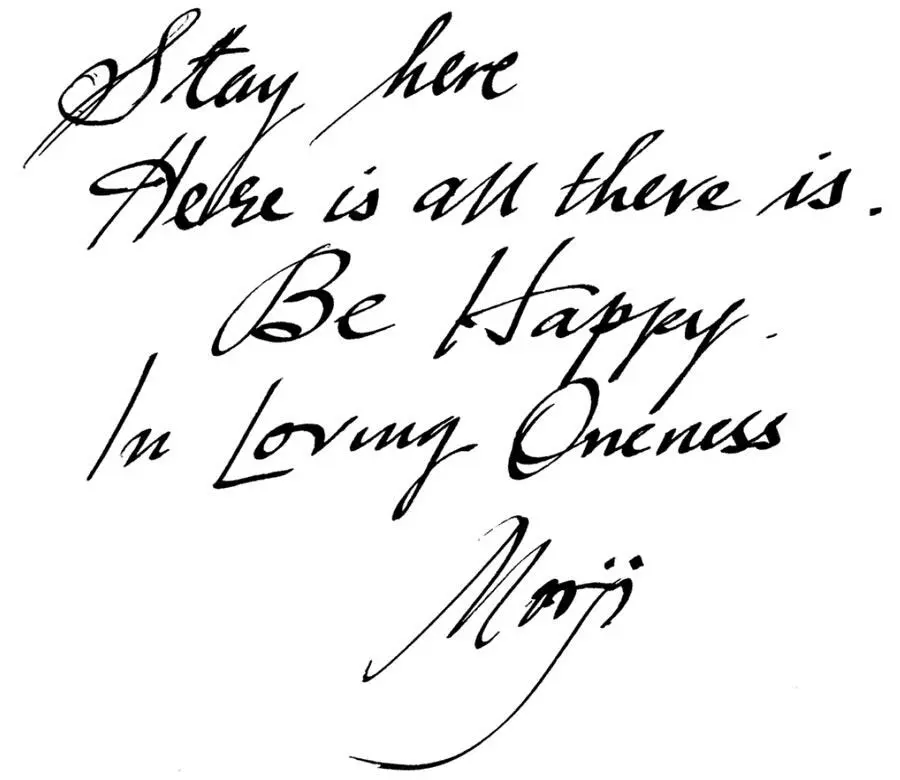 Stay here
Here is all there is.
Be Happy.
In Loving Oneness
Mooji